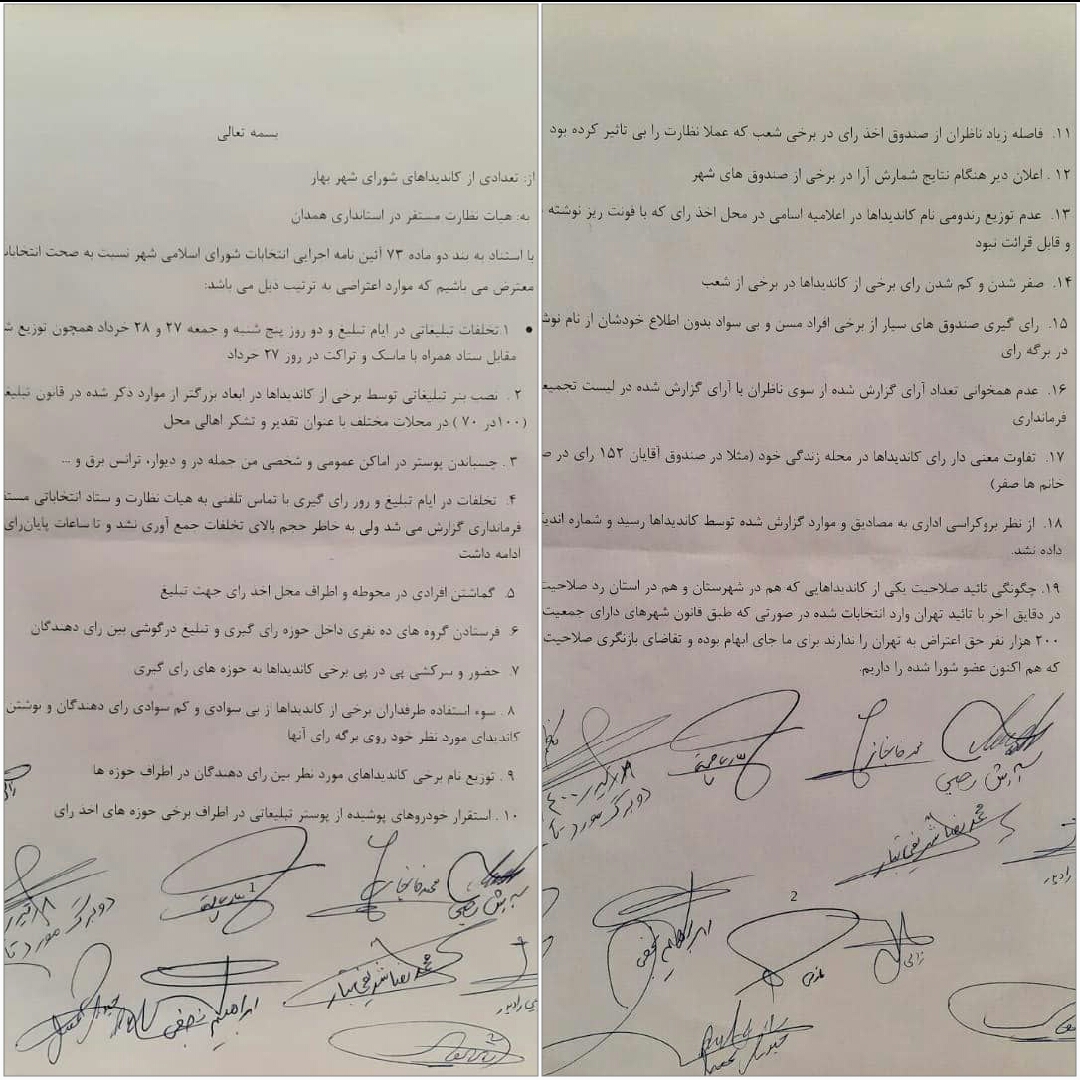 بسمه تعالی
از: تعدادی از کاندیداهای شورای شهر بهار
به: هیات نظارت مستقر در استانداری همدان
با استناد به بند دو ماده ۷۳ آئین نامه اجرایی انتخابات شورای اسلامی شهر نسبت به صحت انتخابات
معترض می باشیم که موارد اعتراضی به ترتیب ذیل می باشد:
• ۱ تخلفات تبلیغاتی در ایام تبلیغ و دو روز پنج شنبه و جمعه ۲۷ و ۲۸ خرداد همچون توزیع
مقابل ستاد همراه با ماسک و تراکت در روز ۲۷ خرداد
۲. نصب بنر تبلیغاتی توسط برخی از کاندیداها در ابعاد بزرگتر از موارد ذکر شده در قانون تبلیغ
(۱۰۰در ۷۰ ) در محلات مختلف با عنوان تقدیر و تشکر اهالی محل
۳ . چسباندن پوستر در اماکن عمومی و شخصی من جمله در و دیوار، ترانس برق و ...
۴. تخلفات در ایام تبلیغ و رور رای گیری با تماس تلفنی به هیات نظارت و ستاد انتخاباتی
فرمانداری گزارش می شد ولی به خاطر حجم بالای تخلفات جمع آوری نشد و تا ساعات پایان‌رای
ادامه داشت
۵. گماشتن افرادی در محوطه و اطراف محل اخذ رای جهت تبلیغ
۶. فرستادن گروه های ده نفری داخل حوزه رای گیری و تبلیغ درگوشی بین رای دهندگان
۷. حضور و سرکشی پی در پی برخی کاندیداها به حوزه های رای گیری
۸ . سوء استفاده طرفداران برخی از کاندیداها از بی سوادی و کم سوادی رای دهندگان و نوشتن
کاندیدای مورد نظر خود روی برگه رای آنها
۹ . توزیع نام برخی کاندیداهای مورد نظر بین رای دهندگان در اطراف حوزه ها
۱۰ . استقرار خودروهای پوشیده از پوستر تبلیغاتی در اطراف برخی حوزه های اخذ رای
محمد خانجانی
دو برگ مورد تا
1
محمدرضا شریفی تبار
ابراهیم نجفی
۱۱. فاصله زیاد ناظران از صندوق اخذ رای در برخی شعب که عملا نظارت را بی تاثیر کرده بود
۱۲ . اعلان دیر هنگام نتایج شمارش آرا در برخی از صندوق های شهر
۱۳. عدم توزیع رندومی نام کاندیداها در اعلامیه اسامی در محل اخذ رای که با فونت ریز نوشته
و قابل قرائت نبود
۱۴. صفر شدن و کم شدن رای برخی از کاندیداها در برخی از شعب
۱۵. رای گیری صندوق های سیار از برخی افراد مسن و بی سواد بدون اطلاع خودشان از نام
در برگه رای
۱۶. عدم همخوانی تعداد آرای گزارش شده از سوی ناظران با آرای گزارش شده در لیست
فرمانداری
۱۷. تفاوت معنی دار رای کاندیداها در محله زندگی خود (مثلا در صندوق آقایان ۱۵۲ رای در
خانم ها صفر)
۱۸. از نظر بروکراسی اداری به مصادیق و موارد گزارش شده توسط کاندیداها رسید و شماره
داده نشد.
۱۹. چگونگی تائید صلاحیت یکی از کاندیداهایی که هم در شهرستان و هم در استان رد صلاحیت
در دقایق اخر با تائید تهران وارد انتخابات شده در صورتی که طبق قانون شهرهای دارای جمعیت
۲۰۰ هزار نفر حق اعتراض به تهران را ندارند برای ما جای ابهام بوده و تقاضای بازنگری صلاحیت
که هم اکنون عضو شورا شده را داریم.
محمد خانجانی
دو برگ مورد تا
محمدرضا شریفی تبار
2
ابراهیم نجفی